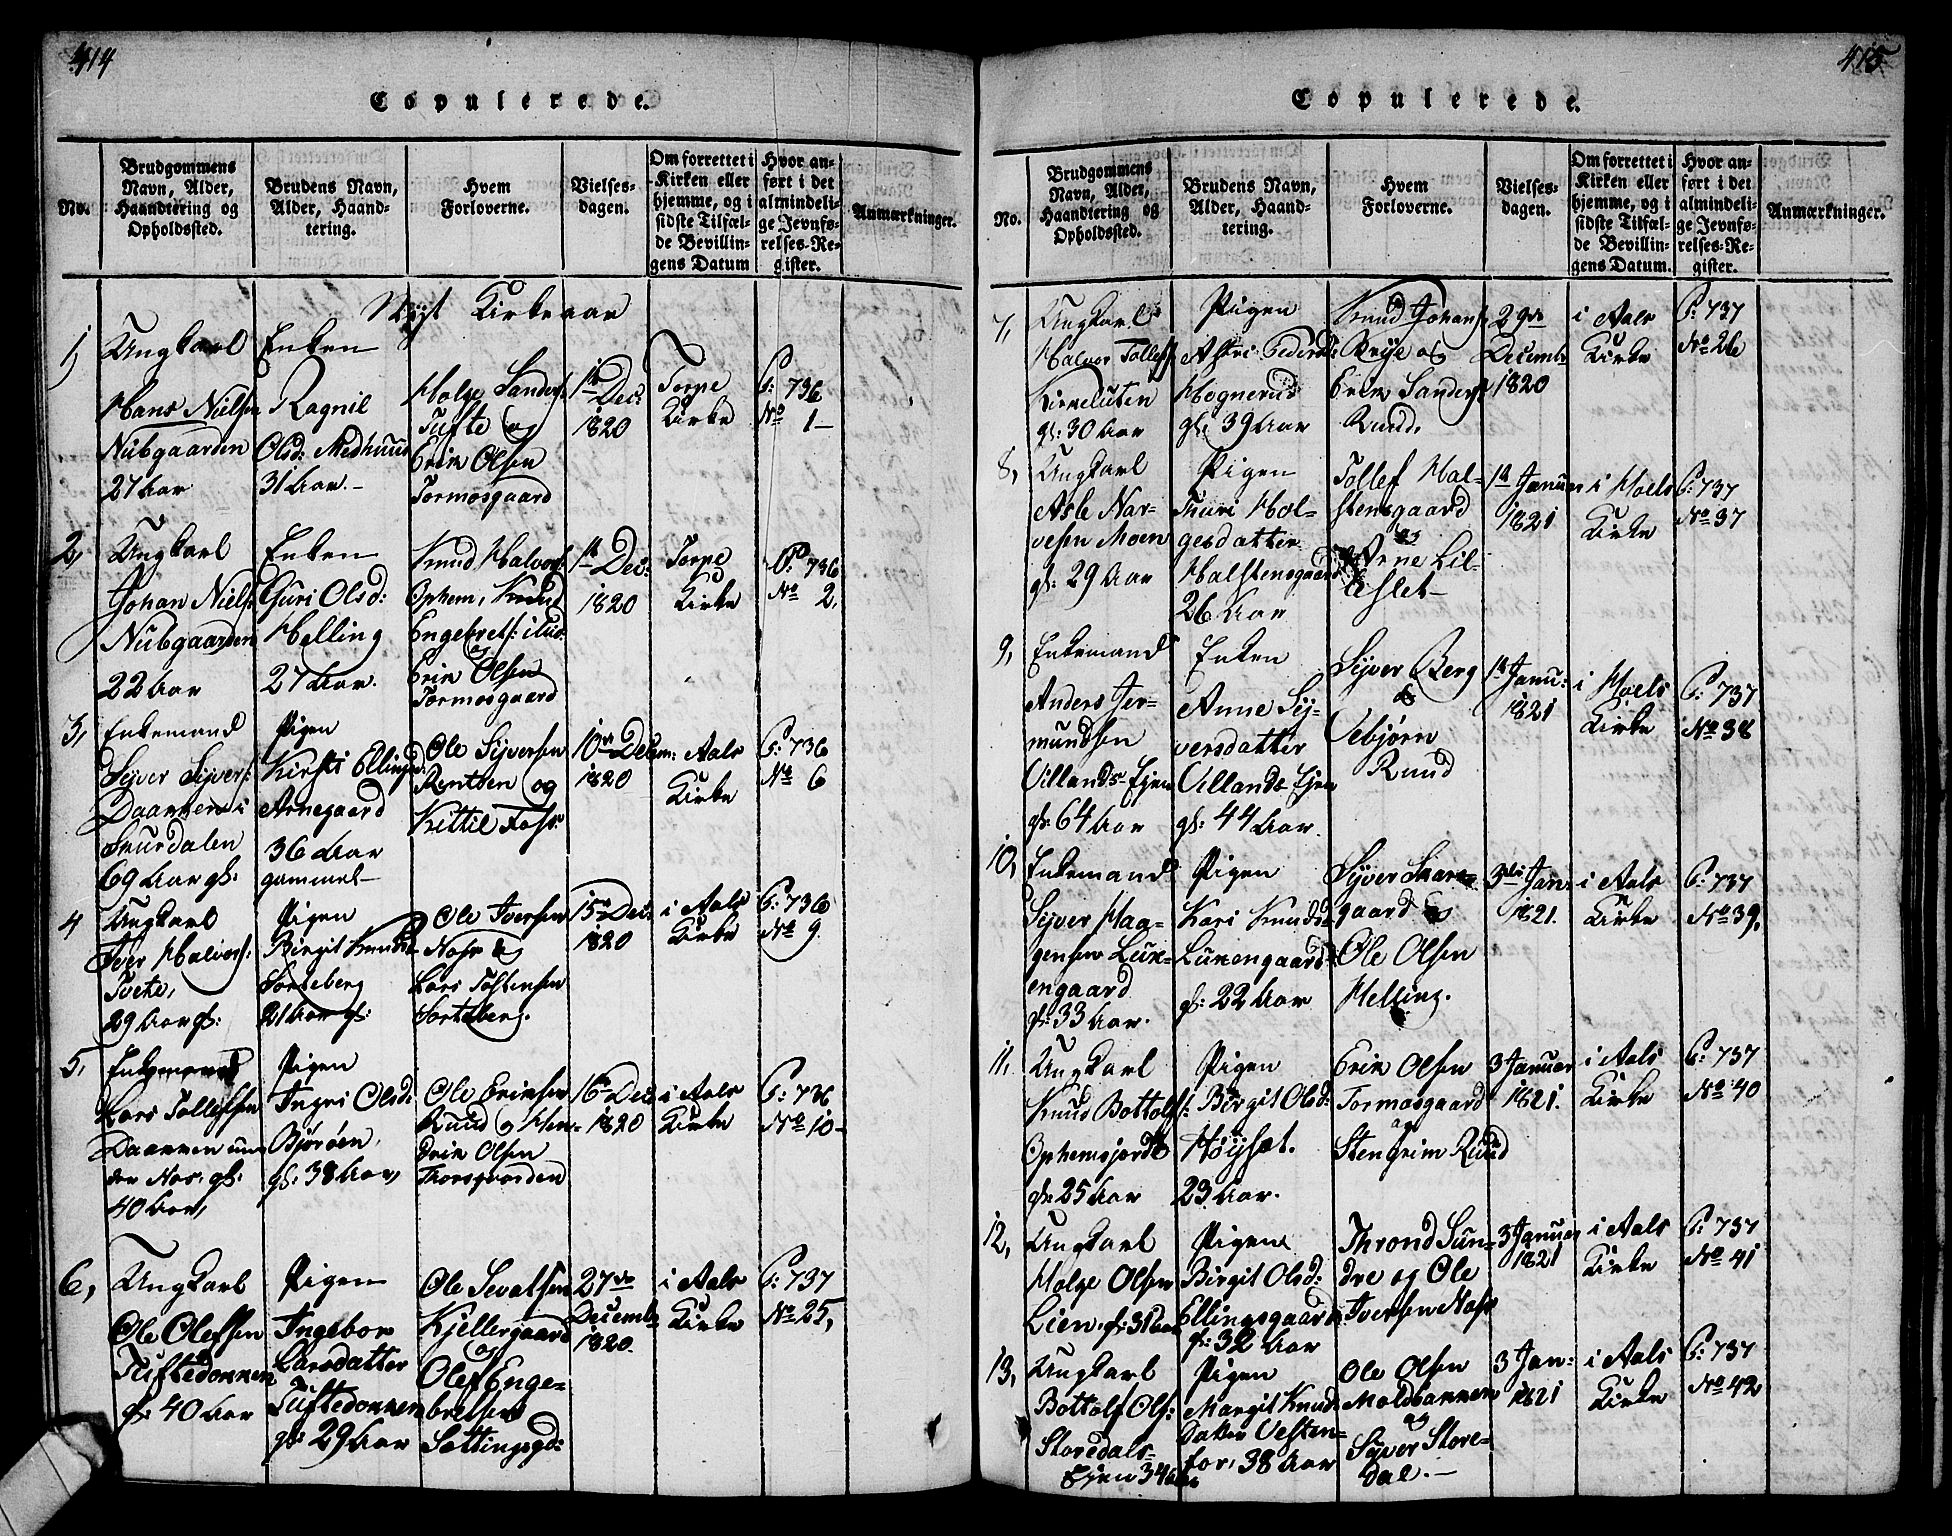 414
Copulerede.
No.
Brudgommens Navn, Alder, Haandtering og Opholdssted.
Brudens Navn, Alder, Haandtering.
Hvem Forloverne.
Vielsesdagen.
Om forrettet i Kirken eller hjemme, og i sidste Tilfælde Bevillingens Datum
Hvor anført i det almindelige Jevnførelses-Register.
Anmærkninger.
Nyt Kirkeaar
1,
Ungkarl
Hans Nielsen
Nubgaarden
27 Aar
Enken
Ragnil
Olsd: Medhuus
31 Aar.-
Holge Sanders:
Tufte og
Erik Olsen
Tormosgaard
1te Dec:
1820
Torpe
Kirke
P: 736
No 1-
2,
Ungkarl
Johan Niels:
Nubgaarden
22 Aar
Enken
Guri Olsd:
Helling
27 Aar.
Knud Halvors:
Ophem, Knud
Engebrets:
og
Erik Olsen
Tormosgaard
1te Dec:
1820
Torpe
Kirke
P: 736
No 2,
3,
Enkemand
Syver Syvers:
Daarken i
Skurdalen
69 Aar gl:
Pigen
Kirsti Ellingsd:
Arnegaard
36 Aar
gammel-
Ole Syversen
Rentsen og
Kittil Foss
10de Decem:
1820
Aals
Kirke
P: 736
No 6
4
Ungkarl
Iver Halvors:
Tveke,
29 Aar gl:
Pigen
Birgit Knudsd
Sorteberg
21 Aar gl:
Ole Iversen
Noss og
Lars Tostensen
Sorteberg.
15de Dec:
1820
i Aals
Kirke
P: 736
No 9
5,
Enkemand
Lars Tollefsen
Daarken un-
der Nos. gl:
40 Aar,
Pigen
Ingri Olsd:
Bjøröen,
gl: 38 Aar,
Ole Eriksen
Ruud og Hen-
drik Olsen
Thorsgaarden
16de Dec:
1820
i Aals
Kirke
P: 736
No 10-
6,
Ungkarl
Ole Olefsen
Tuftedokken
gl: 40 Aar
Pigen
Ingebor
Larsdatter
Tuftedokken
gl: 29 Aar
Ole Sevatsen
Kjellergaard
og
Olef Enge-
bretsen
Sattingsgd:
27de
Decemb:
1820.
i Aals
Kirke
P: 737
No 25,
415
Copulerede.
No.
Brudgommens Navn, Alder, Haandtering og Opholdssted.
Brudens Navn, Alder, Haandtering.
Hvem Forloverne.
Vielsesdagen.
Om forrettet i Kirken eller hjemme, og i sidste Tilfælde Bevillingens Datum.
Hvor anført i det almindelige Jevnførelses-Register.
Anmærkninger.
7,
Ungkarl
Halvor Tollefs:
Kirkeluten
gl: 30 Aar
Pigen
Astri Pedersd:
Hognerud
gl: 39 Aar
Knud Johans:
Brye og
Erik Sanders:
Ruud,
29de
Decemb:
1820
i Aals
Kirke
P: 737
No 26
8,
Ungkarl
Asle Nar-
vesen Moen
gl: 29 Aar
Pigen
Thuri Hol-
gesdatter
Halstensgaard
26 Aar
Tollef Hal-
stensgaard
og
Arne Lil-
Eslet-
1te Januar
1821
i Hoels
Kirke
P: 737
No 37
9,
Enkemand
Anders Jer-
mundsen
Villands-Ejen
gl: 64 Aar
Enken
Anne Sy-
versdatter
Villands-Ejen
gl: 44 Aar.
Syver Berg
og
Vebjørn
Ruud
1te Janu:
1821
i Hoels
Kirke
P: 737
No 38
10,
Enkemand
Syver Haa-
gensen Luk-
engaard
gl: 33 Aar.
Pigen
Kari Knudsd
Lukengaard
gl: 22 Aar
Syver Skare-
gaard og
Ole Olsen
Helling.
3die Jan:
1821.
i Aals
Kirke
P: 737
No 39.
11.
Ungkarl
Knud Bottolfs:
Ophemsjordet
gl: 25 Aar
Pigen
Birgit Olsd:
Høyset.
23 Aar.
Erik Olsen
Tormosgaard
og
Stengrim Ruud
3 Januar
1821.
i Aals
Kirke
P: 737
No 40
12,
Ungkarl
Holge Olsen
Lien. gl: 31 Aar
Pigen
Birgit Olsd:
Ellingsgaard
gl: 32 Aar
Thrond Sun-
dre og Ole
Iversen Noss
3 Januar
1821
i Aals
Kirke
P: 737
No 41
13,
Ungkarl
Bottolf Ols:
Storedals-
Ejen 34 Aar
Pigen
Margit Knuds
Datter Vesten-
for, 38 Aar
Ole Olsen
Moldbakken
og
Syver Store-
dal.-
3 Jan-
1821
i Aals
Kirke
P: 737
No 42